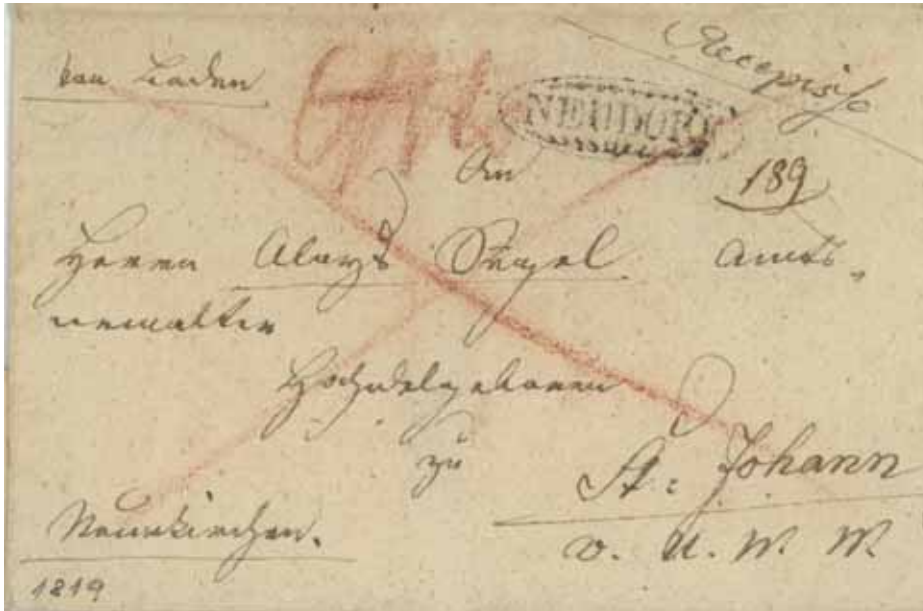 Recepisse
von Baden
NEUDORF
An
189
Herrn Aloys Amts-
verwalter
Hochedelgeboren
zu
St: Johann
Neunkirchen.
v. U. W. W.
1819